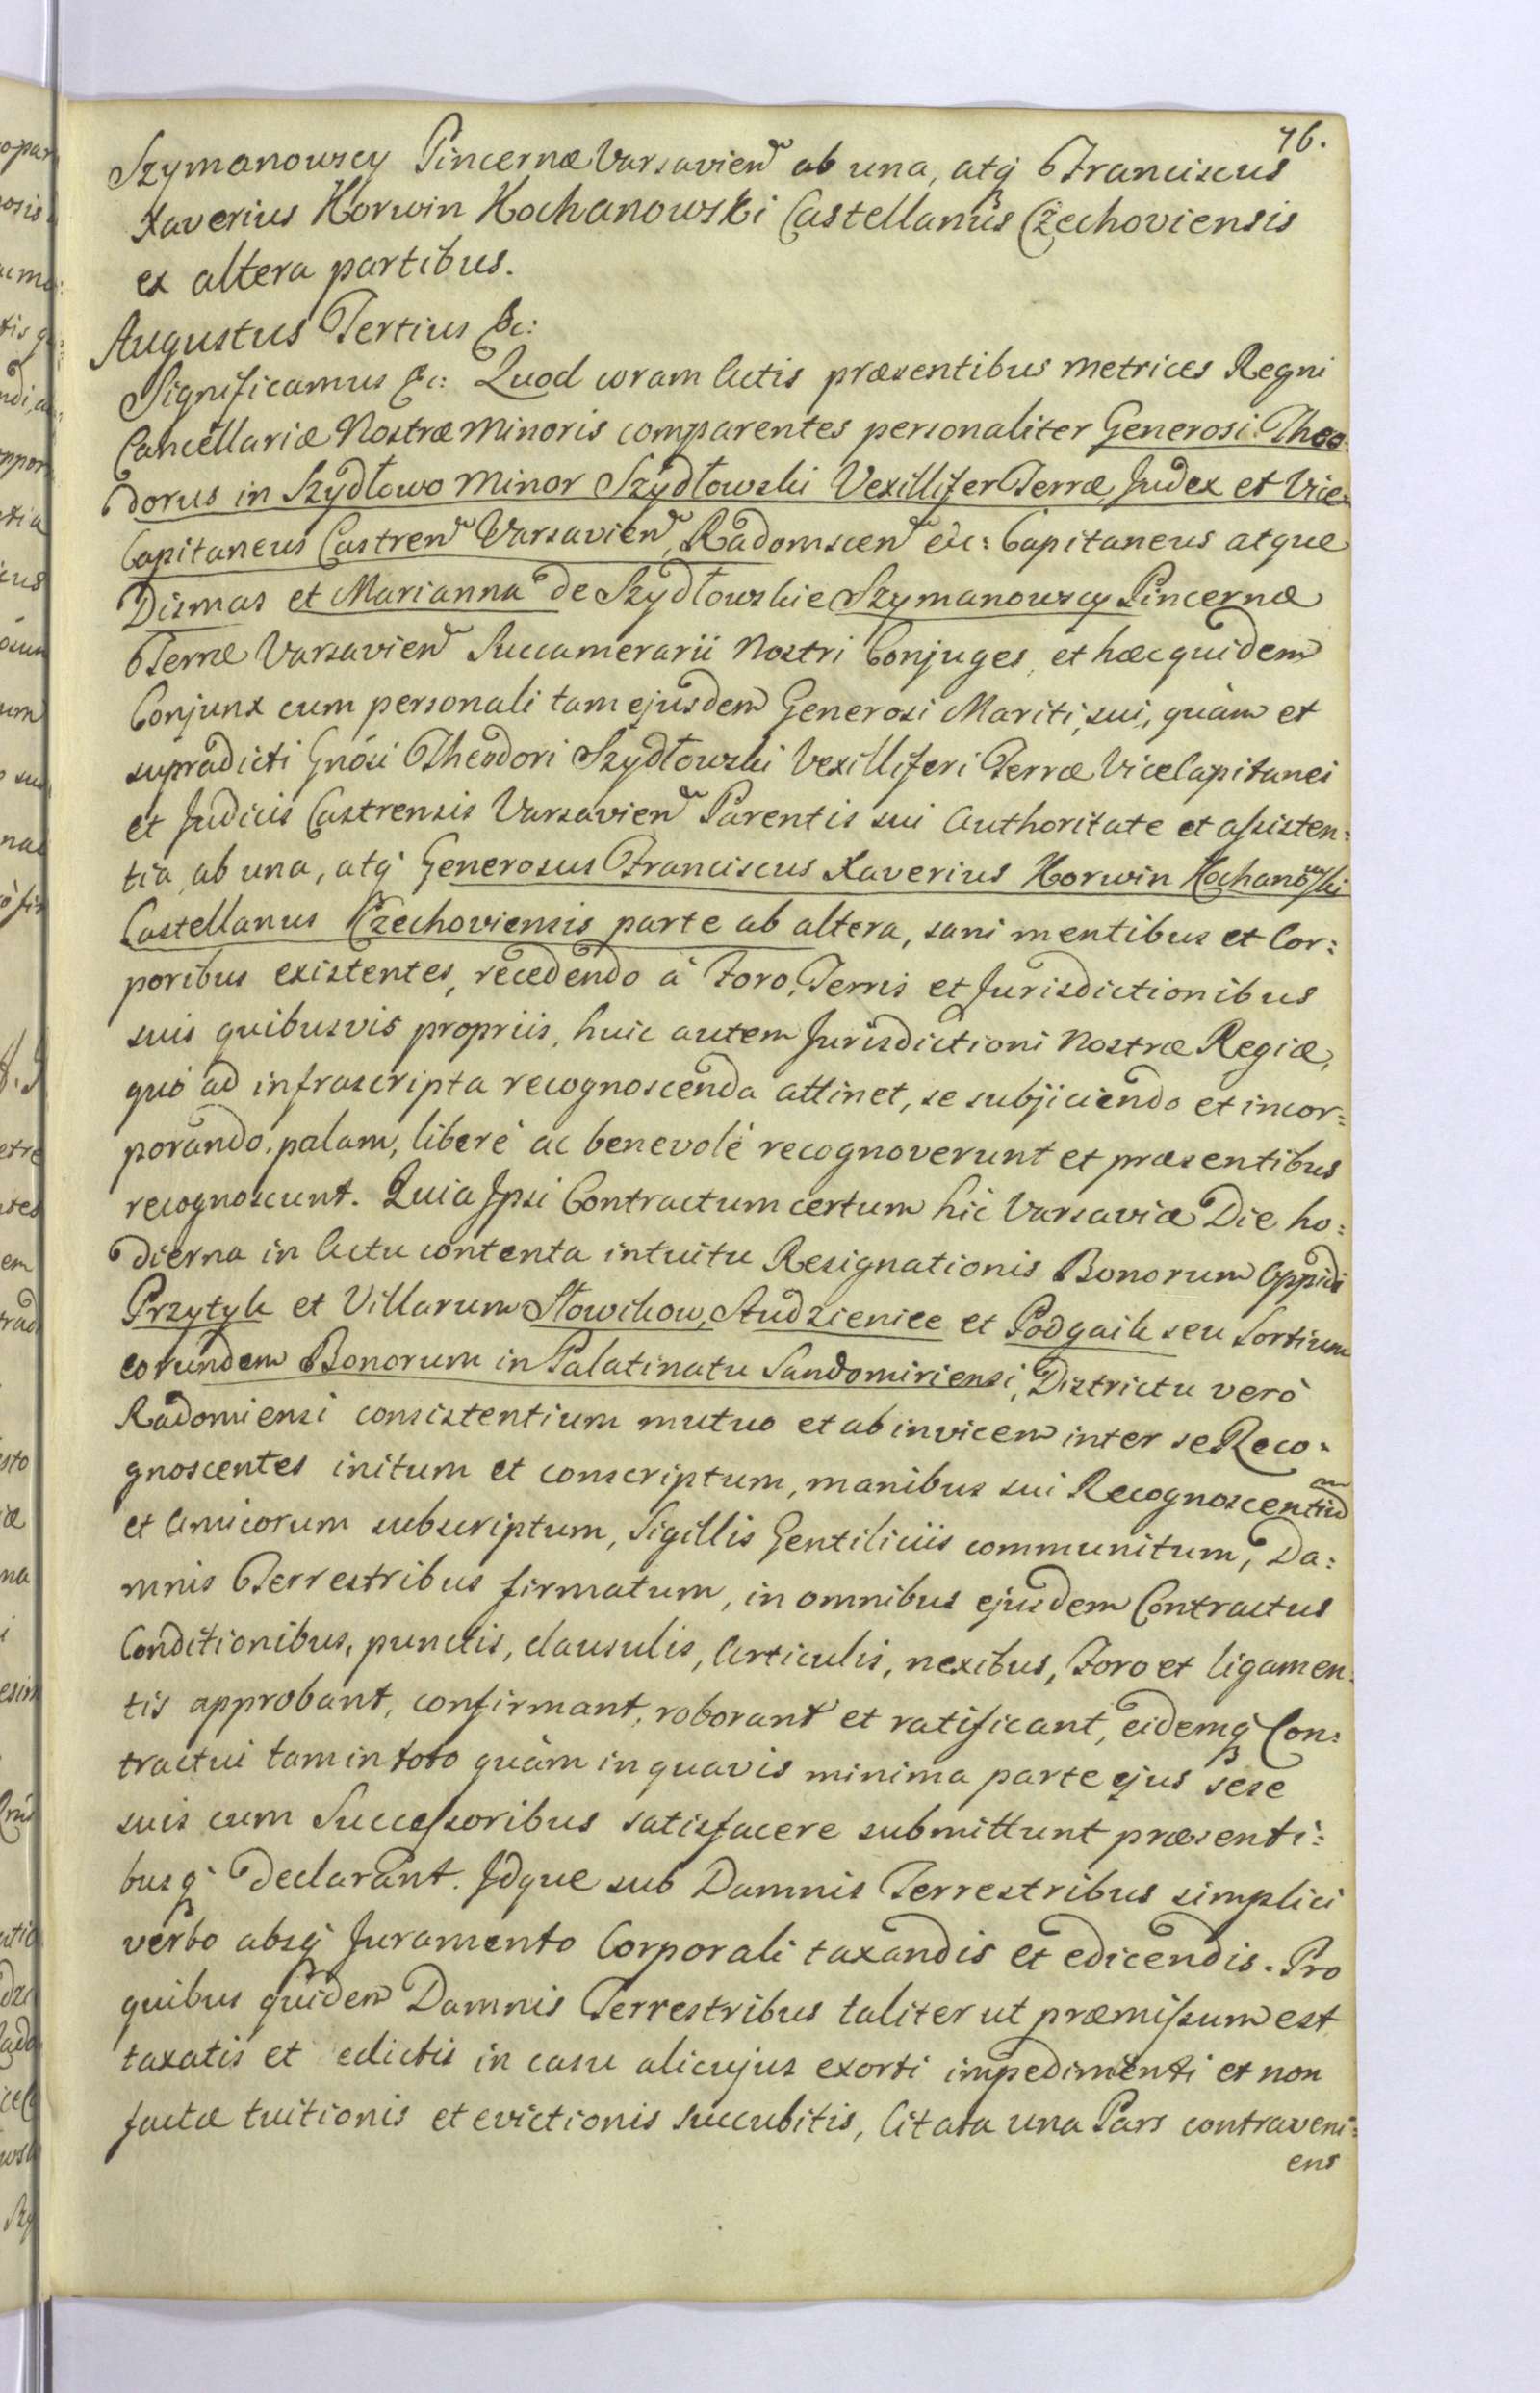 76.
Szymanowscy Pincernæ Varsavien ab una, atq Franciscus
Xaverius Korwin Kochanowski Castellanus Czechoviensis
ex altera partibus.
Augustus Tertius &c:
Significamus &c: Quod coram Actis præsentibus Metrices Regni
Cancellariæ Nostræ Minoris comparentes personaliter Generosi Theo:
dorus in Szydłowo Minor Szydłowski Vexillifer Terræ Judex et Vice:
Capitaneus Castren Varsavien, Radomscen etc: Capitaneus atque
Dismas et Marianna de Szydłowskie Szymanowscy Pincernæ
Terræ Varsavien Succamerarii Nostri Conjuges, et hæc quidem
Conjunx cum personali tam ejusdem Generosi Mariti sui, quàm et
supradicti Gnosi Theodori Szydłowski Vexilliferi Terræ ViceCapitanei
et Judicis Castrensis Varsavien Parentis sui Authoritate et assisten:
tia ab una, atq Generosus Franciscus Xaverius Korwin Kochanowski
Castellanus Czechoviensis parte ab altera, sani mentibus et Cor:
poribus existentes, recedendo à Foro, Terris et Jurisdictionibus
suis quibusvis propriis, huic autem Jurisdictioni Nostræ Regiæ,
quò ad infrascripta recognoscenda attinet, se subjiciendo et incor:
porando, palam, liberè ac benevolè recognoverunt et præsentibus
recognoscunt. Quia Ipsi Contractum certum hic Varsaviæ Die ho:
dierna in Actu contenta intuitu Resignationis Bonorum Oppidi
Przytyk et Villarum Słowikow, Studzienice et Podgaik seu Sortium
eorundem Bonorum in Palatinatu Sandomiriensi, Districtu verò
Radomiensi consistentium mutuo et ab invicem inter se Reco:
gnoscentes initum et conscriptum, manibus sui Recognoscentium
et Amicorum subscriptum, Sigillis Gentiliciis communitum, Da:
mnis Terrestribus firmatum, in omnibus ejusdem Contractus
Conditionibus, punctis, clausulis, Articulis, nexibus, Foro et ligamen:
tis approbant, confirmant, roborant et ratificant, eidemq Con:
tractui tam in toto quàm in quavis minima parte ejus sese
suis cum Successoribus satisfacere submittunt præsenti:
busq declarant. Idque sub Damnis Terrestribus simplici
verbo absq Juramento Corporali taxandis et edicendis. Pro
quibus quidem Damnis Terrestribus taliter ut præmissum est
taxatis et edictis in casu alicujus exorti impedimenti et non
factæ tuitionis et evictionis succubitis, Citata una Pars contraveni:
ens